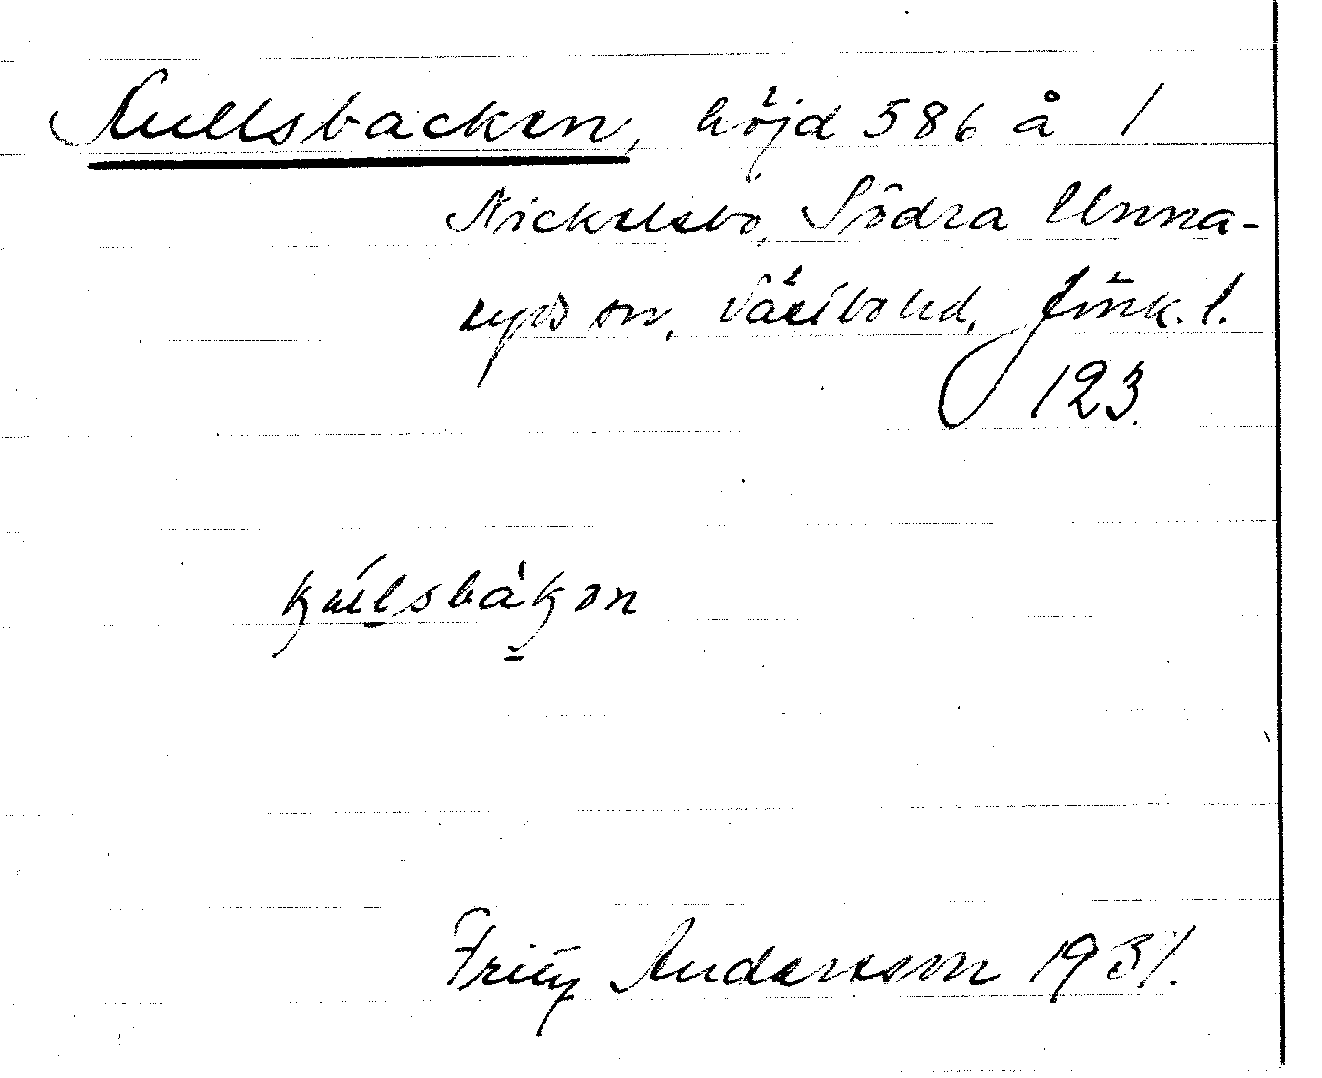 Kullsbacken, höjd 586 å 1
Nickelsbo, Södra Unna-
ryds sn, Västbo hd, Jönk. l.
123.
Fritz Andersson 1931.